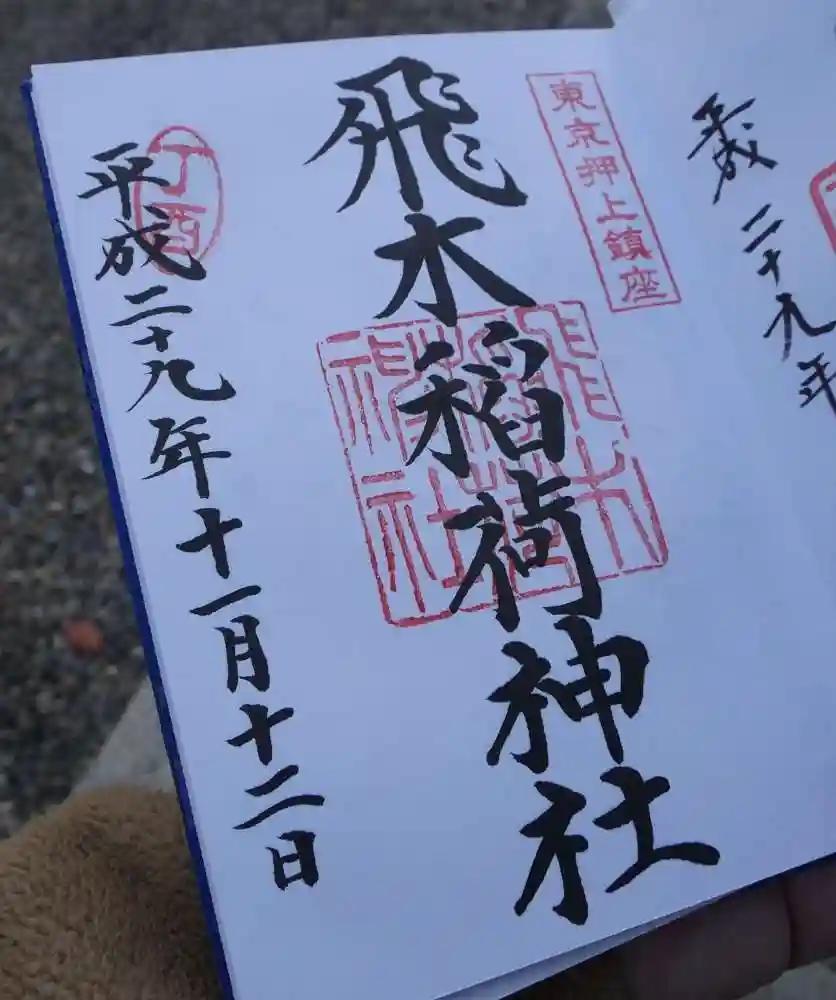 平成二十九年
東京押上鎮座
飛木稲荷神社
飛木
稲荷
神社
丁酉
平成二十九年十一月十二日